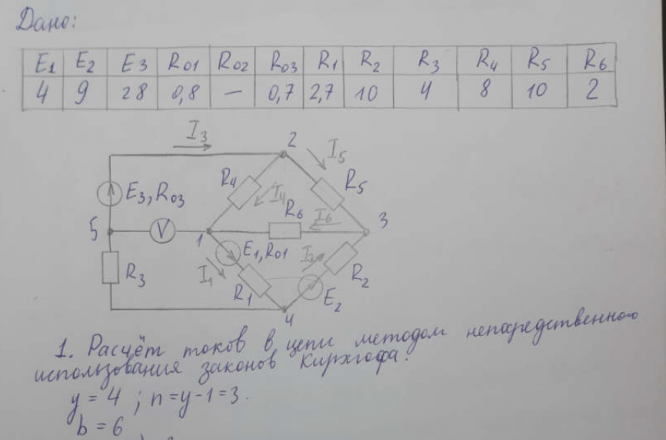 Дано:
E1 E2 E3 R01 R02 R03 R1 R2 R3 R4 R5 R6
4 9 28 0,8 — 0,7 2,7 10 4 8 10 2
I3
2
I5
R4
R5
E3, R03
I4
R6
I6
5
V
1
3
E1, R01
I2
R2
R3
I1
R1
E2
4
1. Расчёт токов в цепи методом непосредственного
использования законов Кирхгофа:
y = 4 ; n = y - 1 = 3.
b = 6